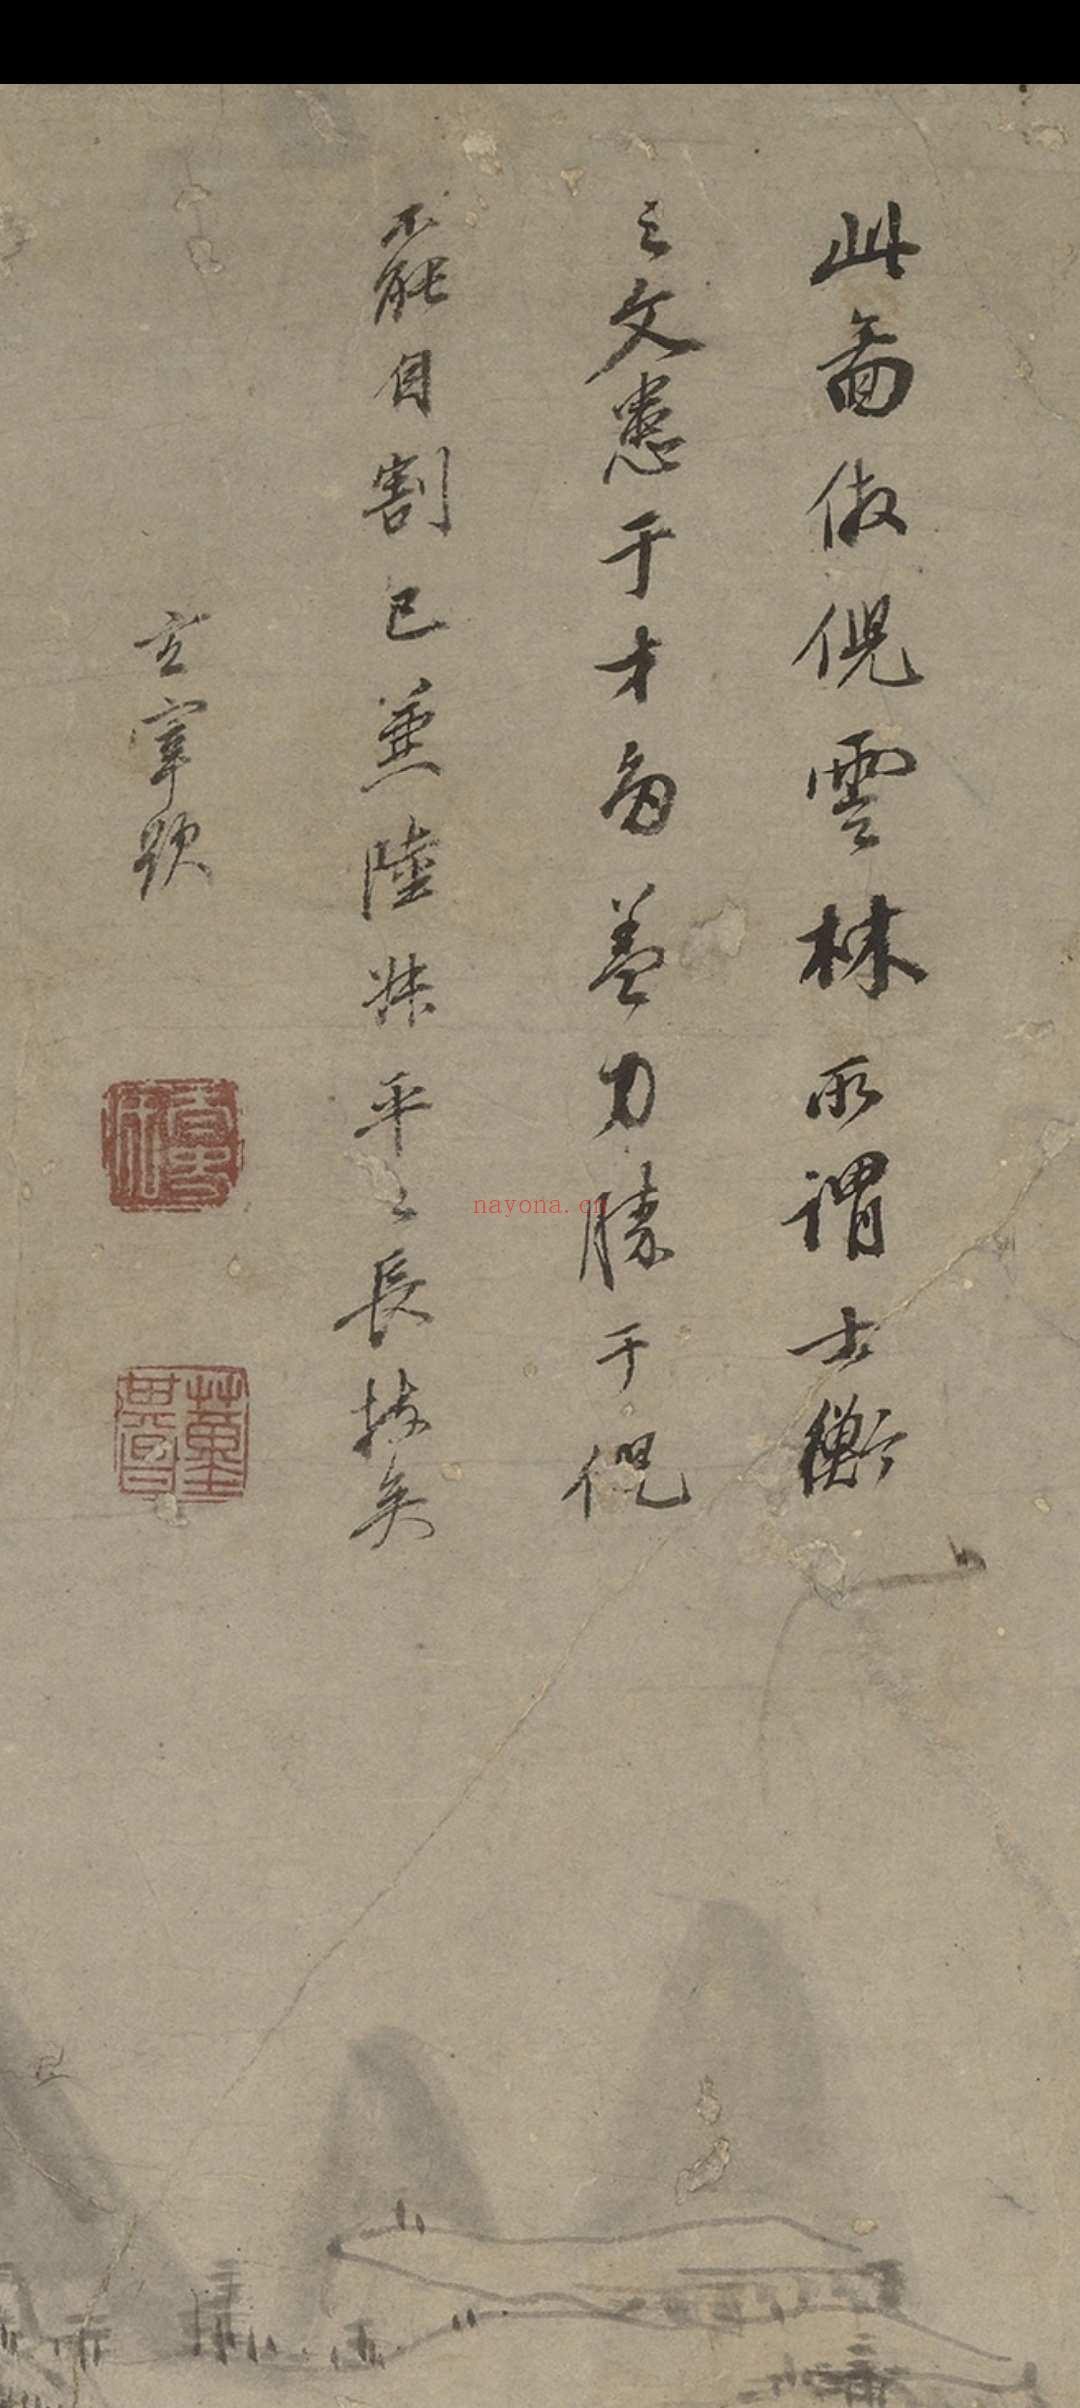 此啚倣倪雲林所謂士衡
之文患于才多蓋力勝于倪
不能自割已兼陸叔平之長技矣
玄宰題
董其昌
nayona.cn